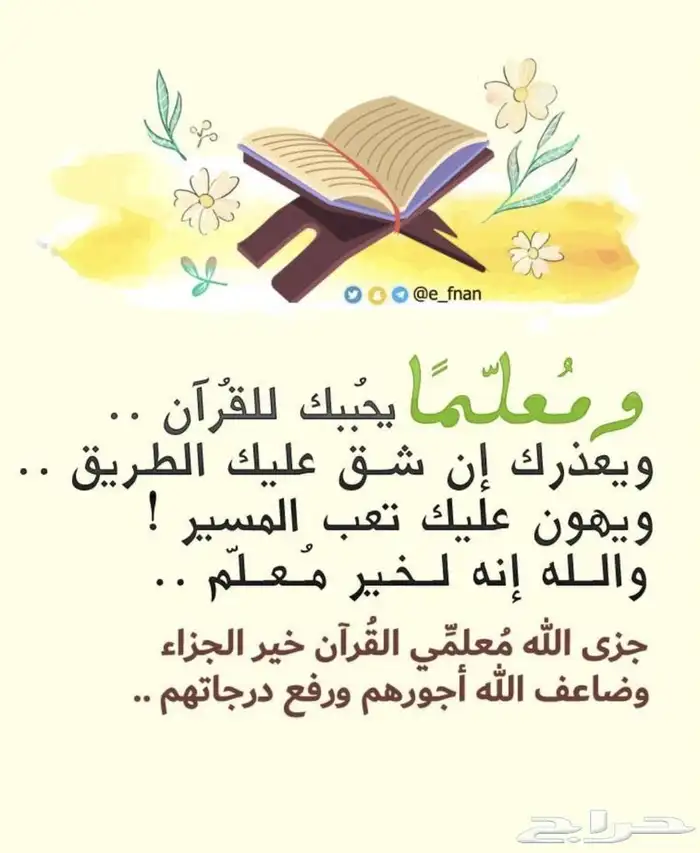 @e_fnan
ومُعلّمًا يحُببك للقُرآن ..
ويعذرك إن شـق عليك الطريق ..
ويهون عليك تعب المسير !
والـلـه إنه لـخـير مُـعـلـّم ..
جزى الله مُعلمِّي القُرآن خير الجزاء
وضاعف الله أجورهم ورفع درجاتهم ..
حراج